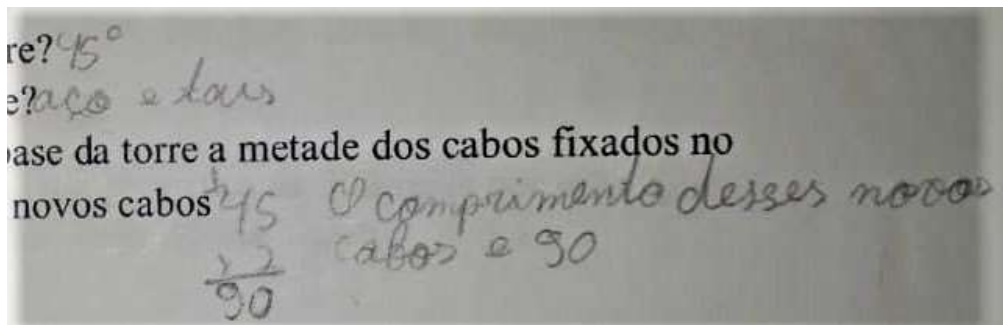 re? 45°
e? aço e
base da torre a metade dos cabos fixados no
novos cabos 45 O comprimento desses novos
x 2 cabos e 90
90